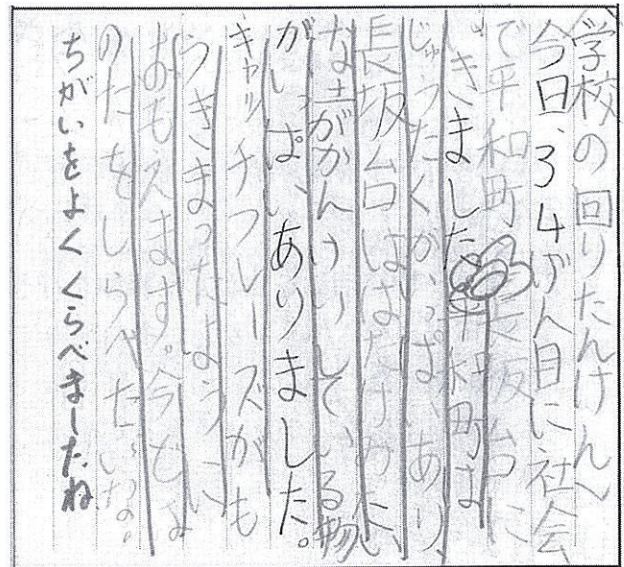 学校の回りたんけんへ
今日、34げん目に社会
で平和町 長坂台に
いきました。平和町は
じゅうたくがいっぱいあり、
長坂台ははたけみたい
な土がかんけいしている物
がいっぱいありました。
キャッチフレーズがも
うきまったように
おもえます。今もよ
のた をしらべたいな。
ちがいをよくくらべましたね